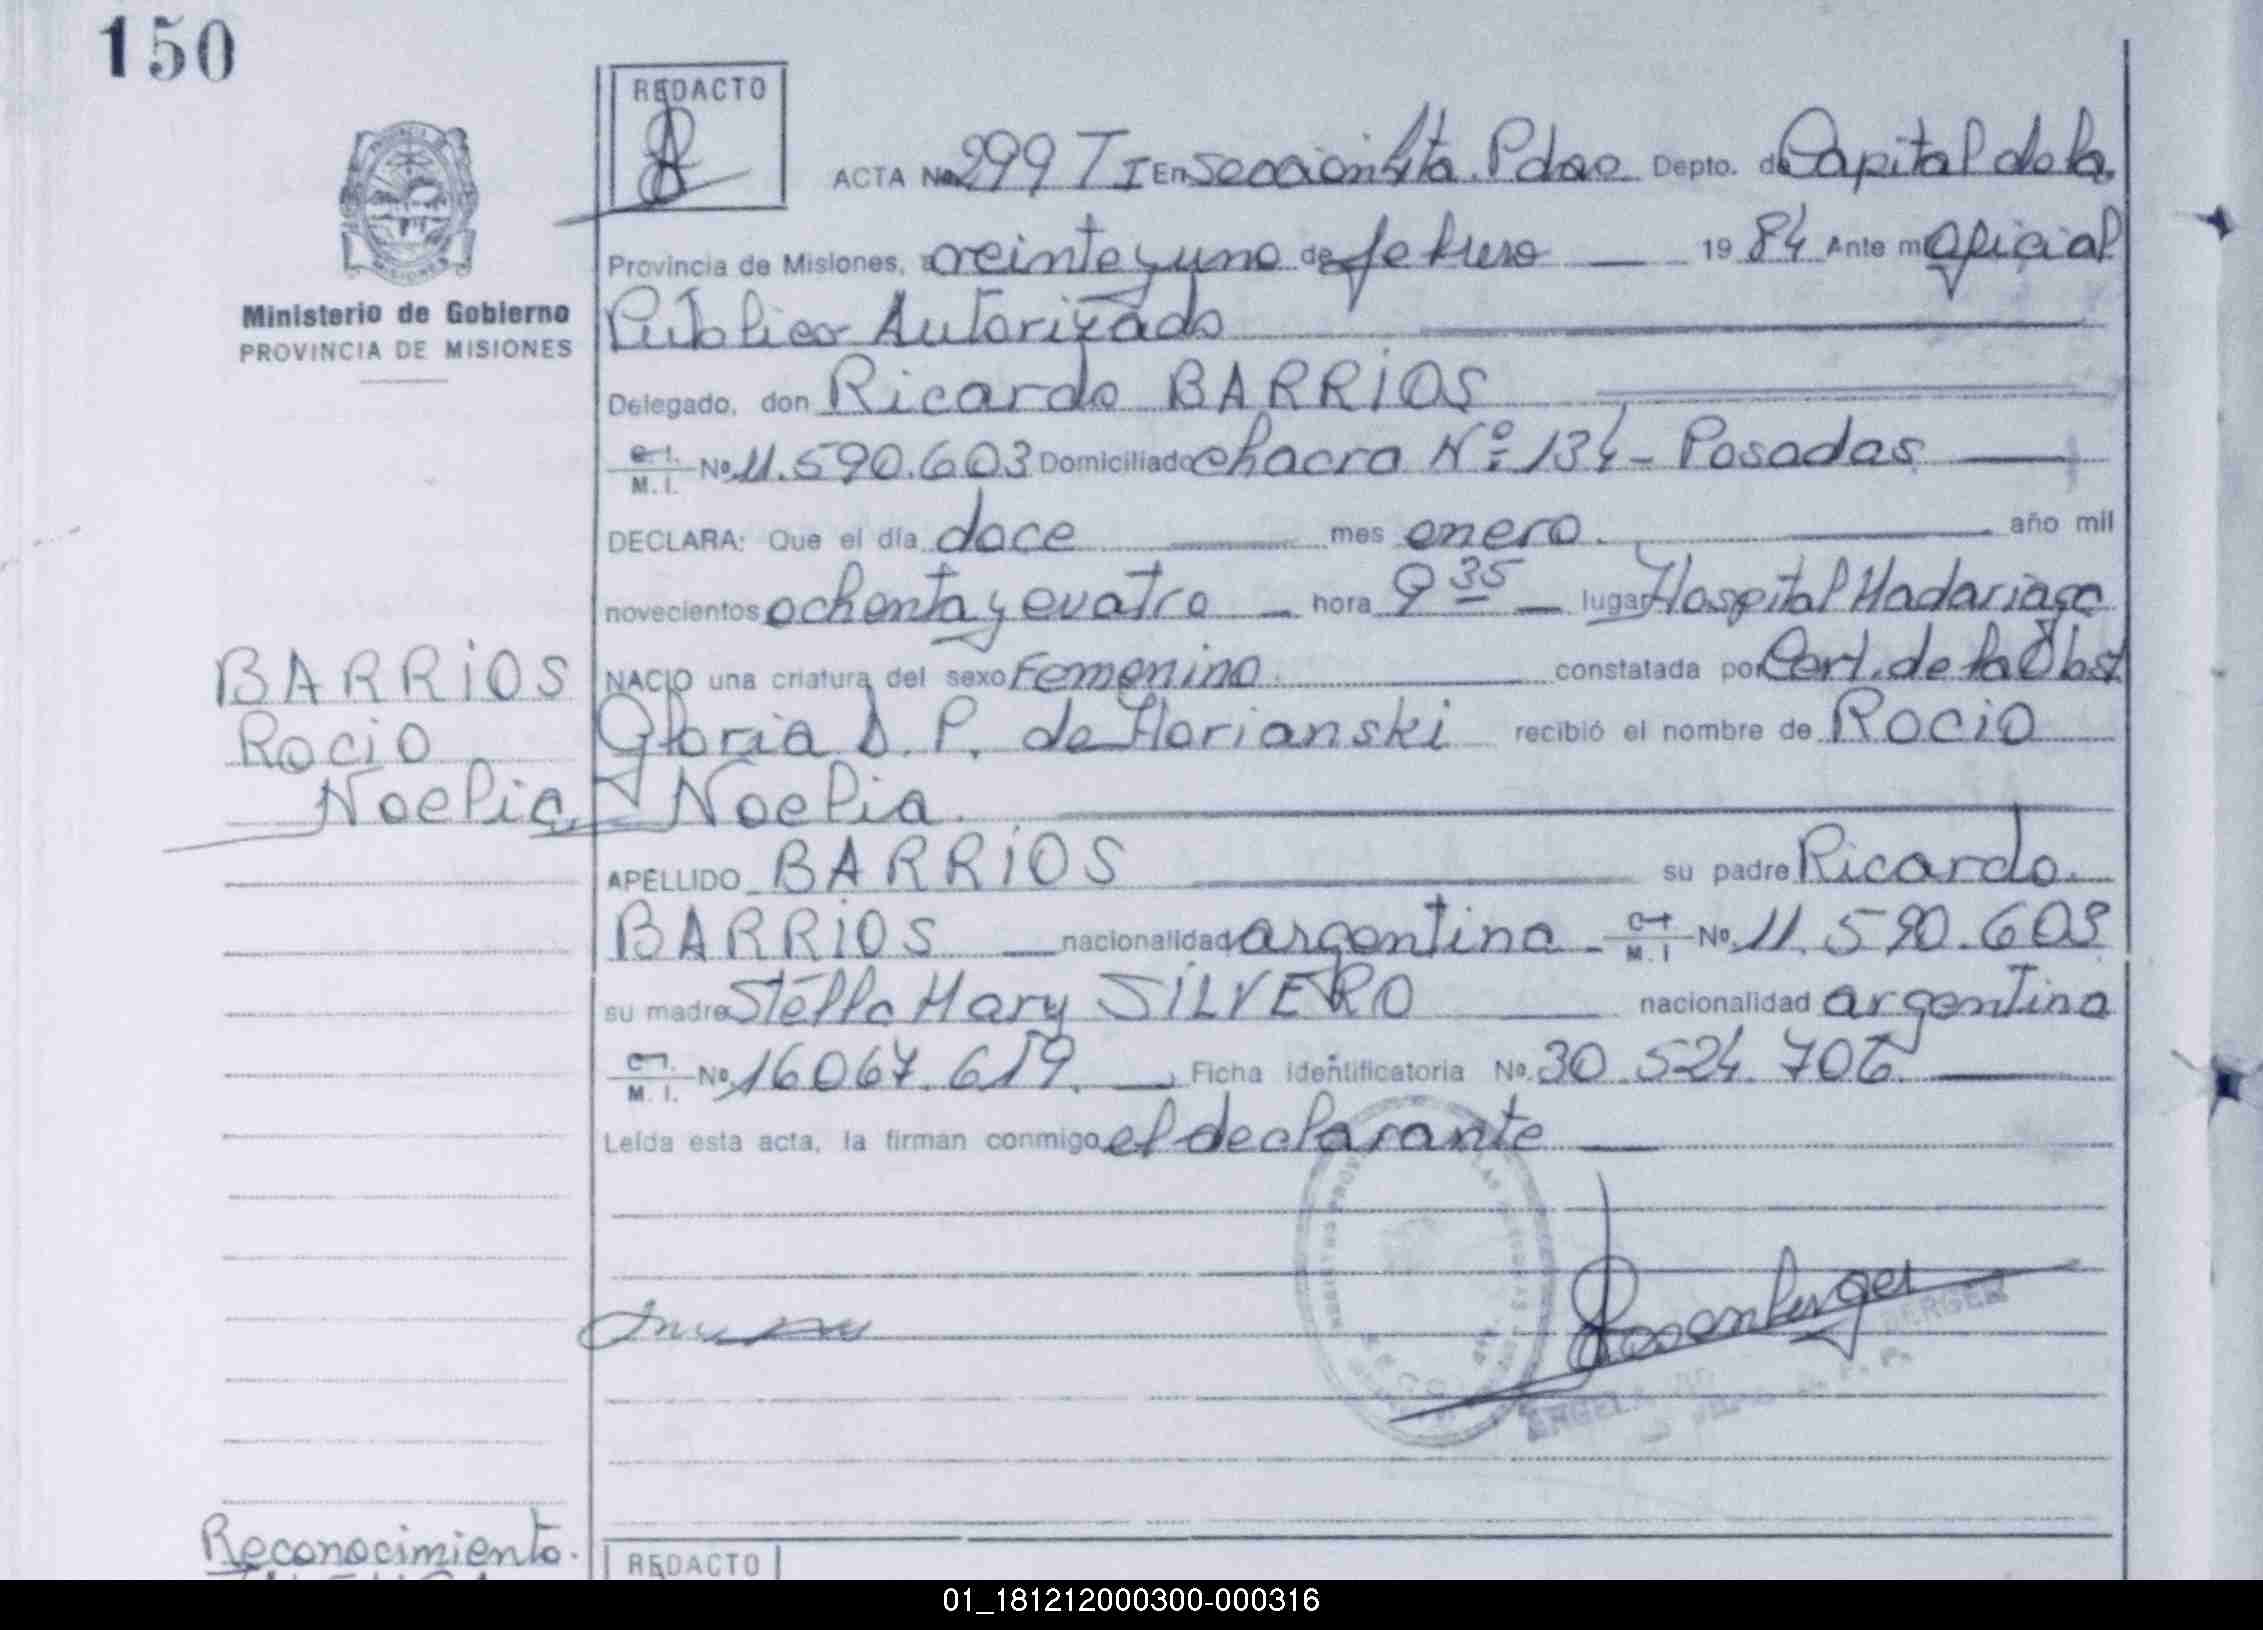 150
REDACTO
ACTA No 299 T I En Sección 4ta. Pdas Depto. de Capital de la
Provincia de Misiones, a veinte y uno de febrero 19 84 Ante mi Oficial
Ministerio de Gobierno
PROVINCIA DE MISIONES
Público Autorizado
Delegado, don Ricardo BARRIOS
C. I. M. I. No 11.590.603 Domiciliado chacra Nº 134 - Posadas
DECLARA: Que el día doce mes enero. año mil
novecientos ochenta y cuatro hora 9 35 lugar Hospital Madariaga
NACIO una criatura del sexo Femenino. constatada por Cert. de la Obst
Gloria D. P. de Morianski recibió el nombre de Rocio
Noelia.
BARRIOS
Rocio
Noelia
APELLIDO BARRIOS su padre Ricardo.
BARRIOS nacionalidad argentina C. I. M. I No. 11.590.603
su madre Stella Mary SILVERO nacionalidad argentina
C. I. M. I. No 16067.619. Ficha identificatoria No. 30.524.706
Leída esta acta, la firman conmigo el declarante
Rosenberger
BERGER
ANGELA
Reconocimiento.
REDACTO
01_181212000300-000316